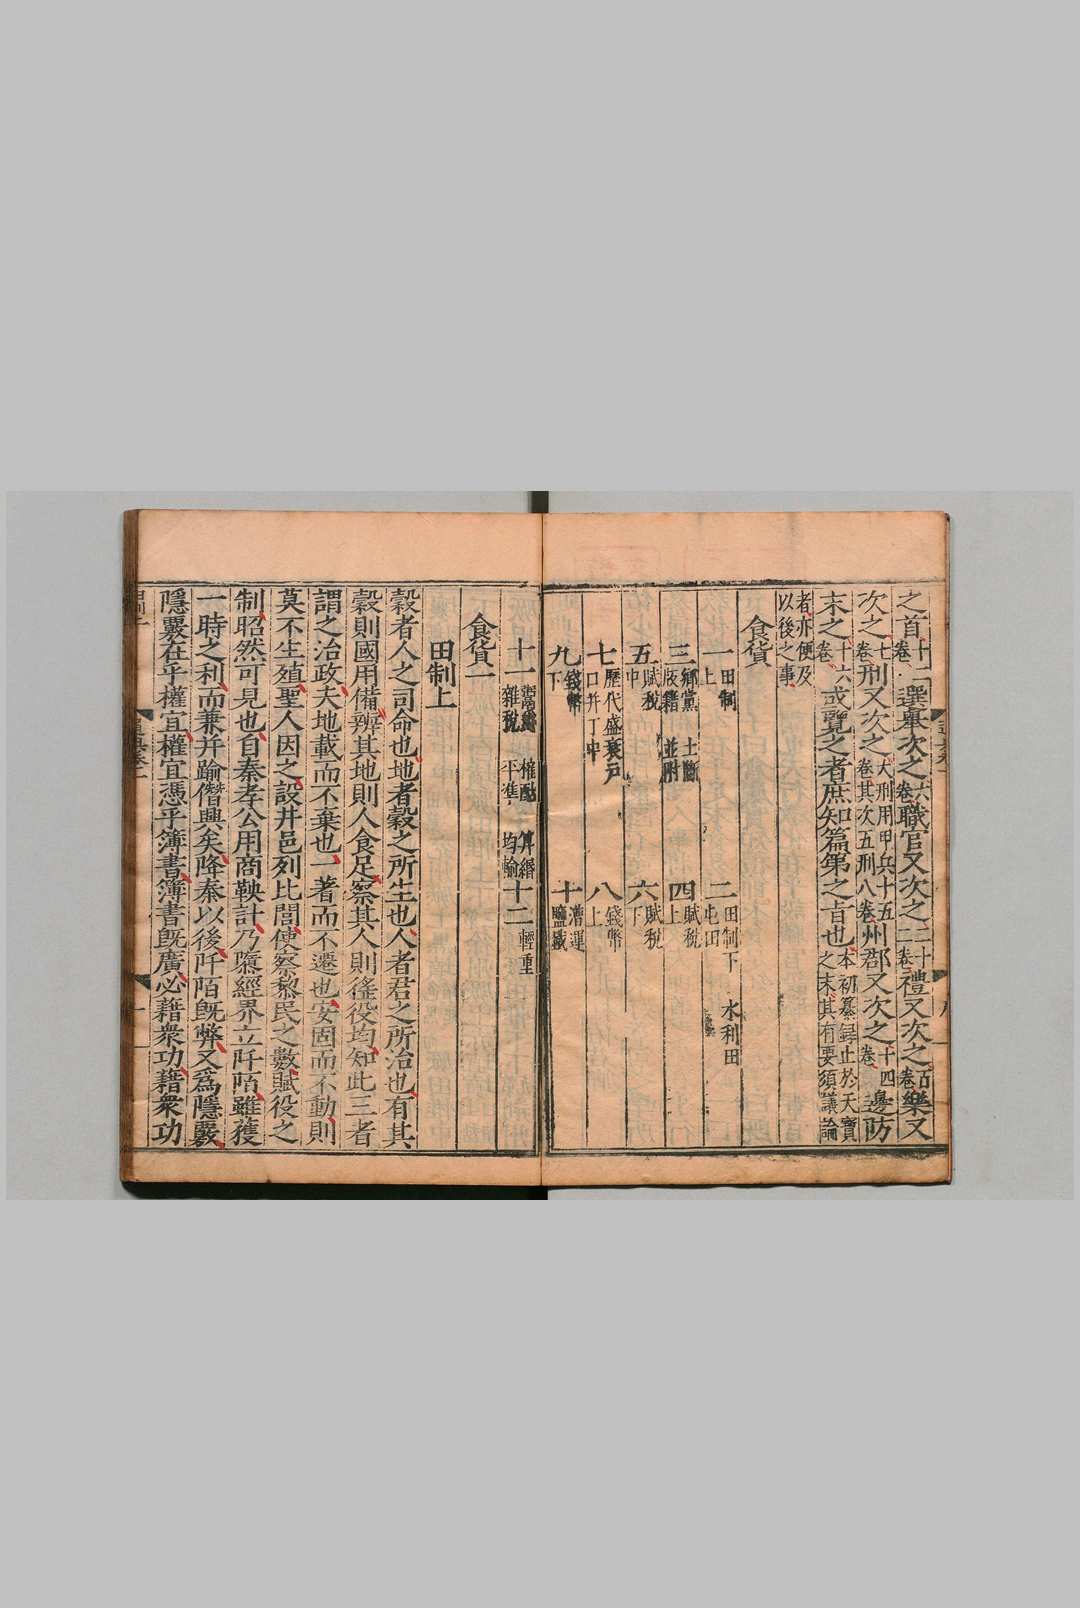 之首十二卷選舉次之六卷職官又次之二十二卷禮又次之百卷樂又
次之七卷刑又次之大刑用甲兵十五卷其次五刑八卷州郡又次之十四卷邊防
末之十六卷或覽之者庶知篇第之旨也本初纂録止於天寶之末其有要須議論
者亦便及以後之事
食貨
一田制上 二田制下 水利田 屯田
三鄉黨 土斷 版籍 並附 四賦稅上
五賦稅中 六賦稅下
七歷代盛衰戶口 丁中 八錢幣上
九錢幣下 十漕運 鹽鐵
十一鬻爵 榷酤 算緡 雜稅 平準 均輸 十二輕重
食貨一
田制上
穀者人之司命也地者穀之所生也人者君之所治也有其
穀則國用備辨其地則人食足察其人則徭役均知此三者
謂之治政夫地載而不棄也一著而不遷也安固而不動則
莫不生殖聖人因之設井邑列比閭使察黎民之數賦役之
制昭然可見也自秦孝公用商鞅計乃隳經界立阡陌雖獲
一時之利而兼并踰僭興矣降秦以後阡陌既弊又為隱覈
隱覈在乎權宜權宜憑乎簿書簿書既廣必藉衆功藉衆功